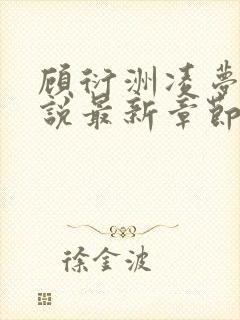 顾衍洲凌夢
說最新章節
徐金波